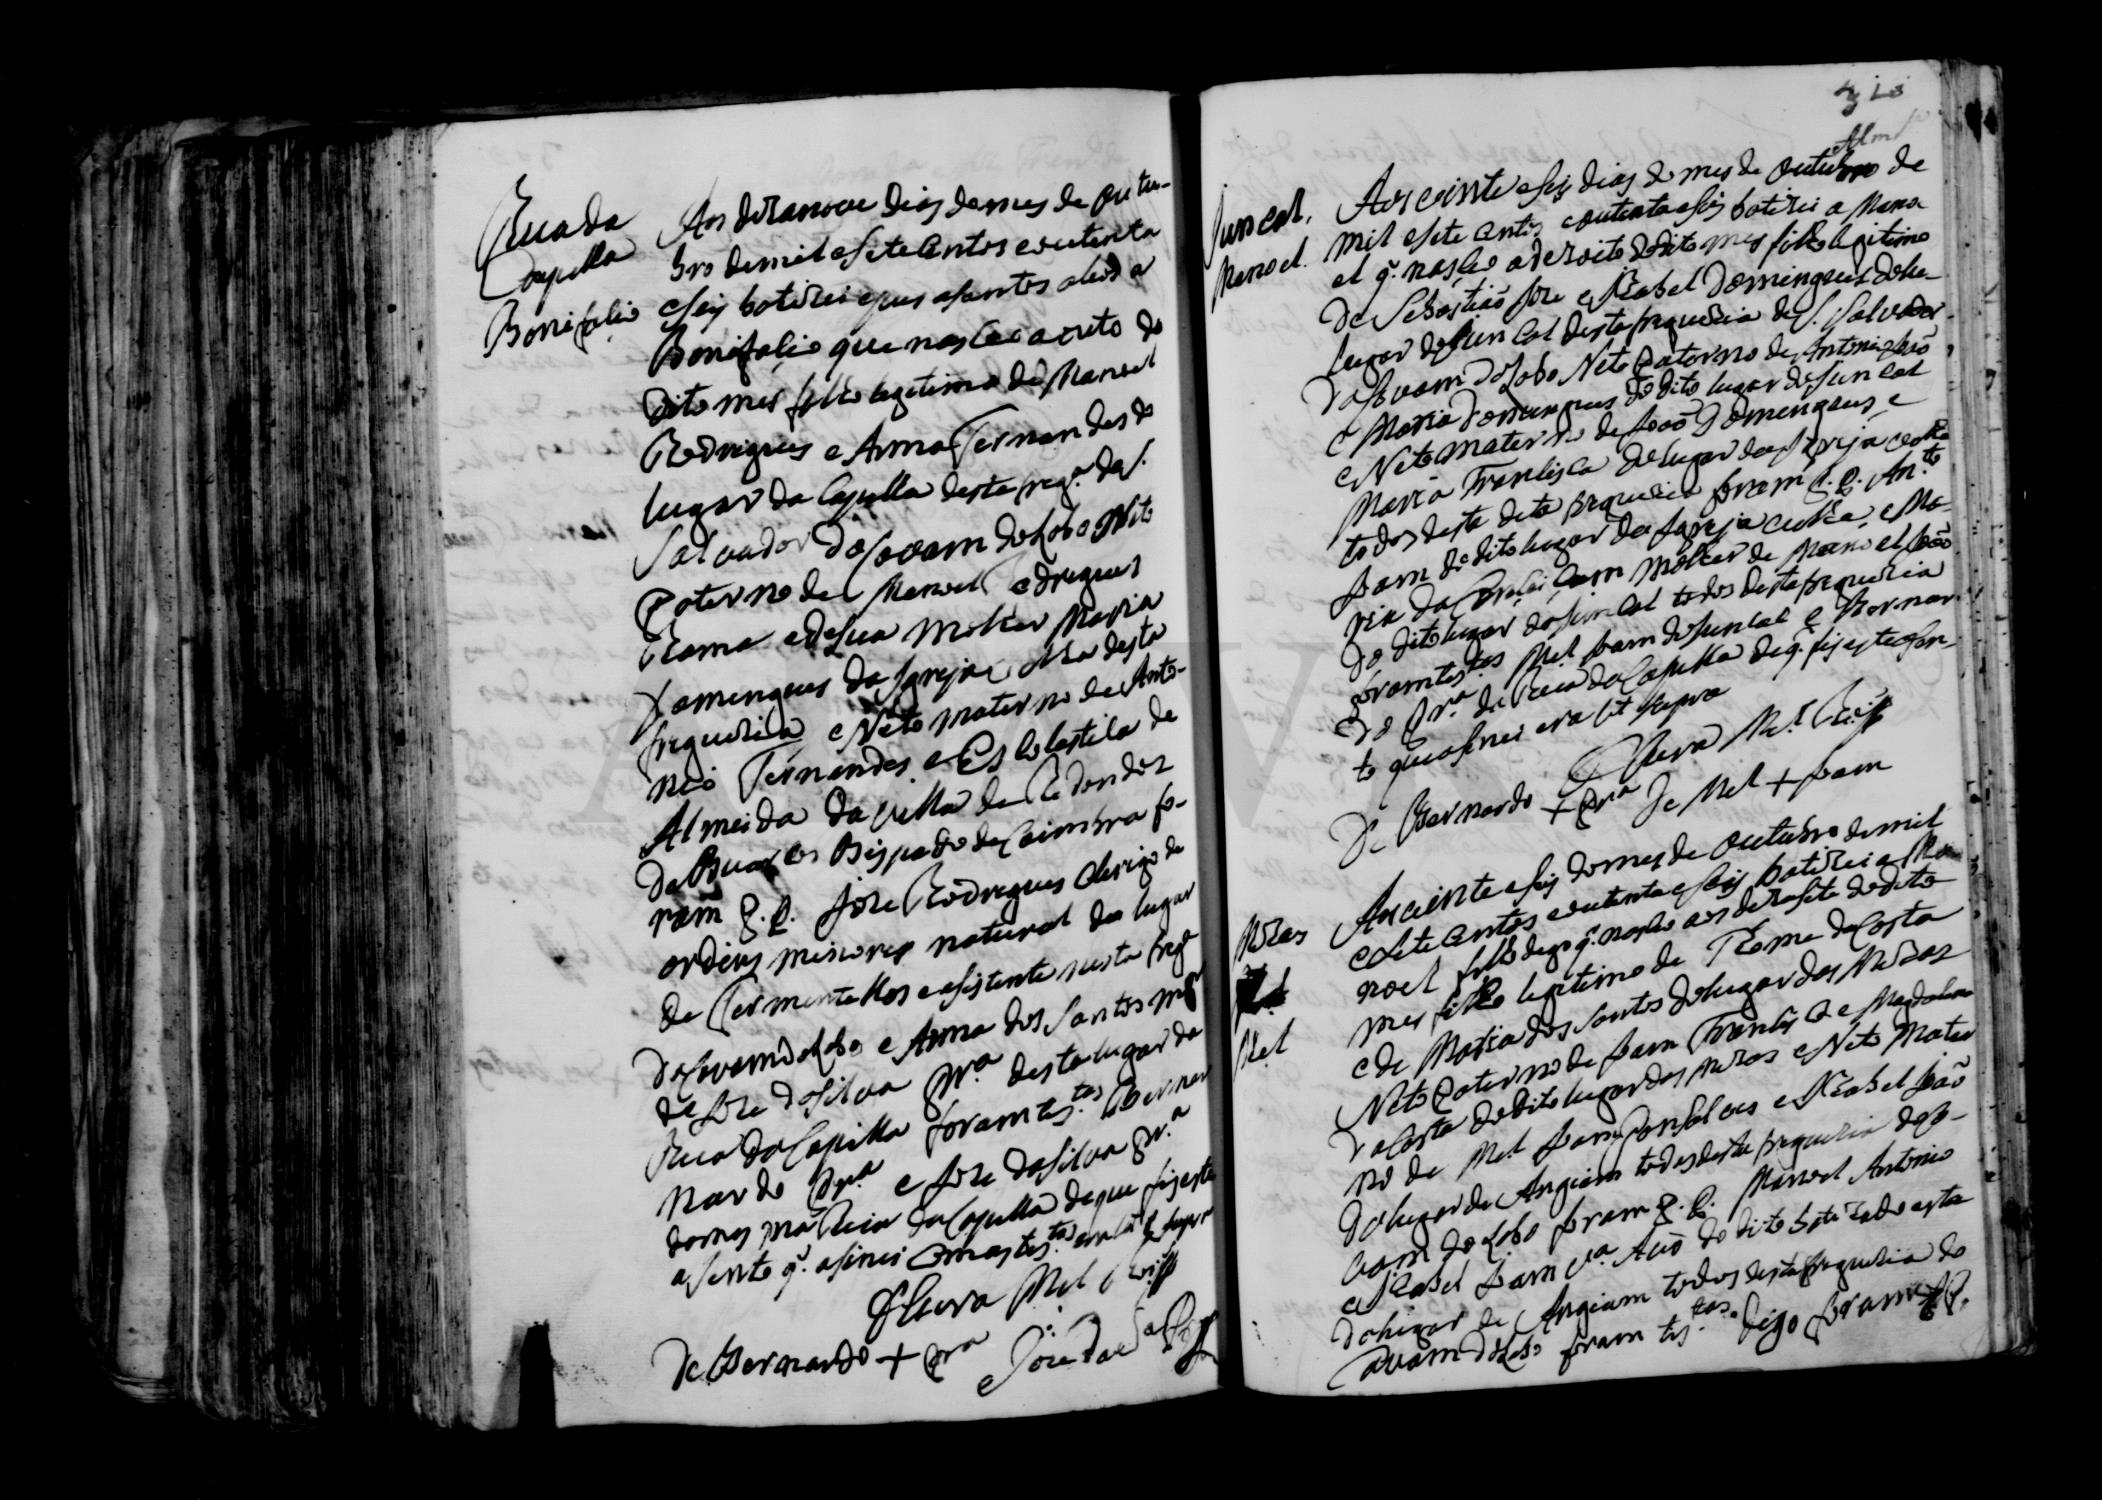 Rua da
Capella
Bonifacio
Aos dezanove dias do mes de outu-
bro de mil e sete centos e outenta
e seis batizei e pus os santos oleos a
Bonifacio que nasceo a outo do
dito mes filho legitimo de Manoel
Rodrigues e Anna Fernandes do
lugar da Capella desta freg.ª de S.
Salvador de Covam do Lobo Neto
Paterno de Manoel Rodrigues
e de sua molher Maria
Domingues da Igreja velha desta
freguezia e Neto materno de Anto-
nio Fernandes e Escolastica de
Almeida da villa de Redondoz
de Buarcos Bispado de Coimbra fo-
ram P. P. Joze Rodrigues clerigo de
ordens menores natural do lugar
de Fermentellos e asistente nesta freg.ª
de Covam do Lobo e Anna dos Santos
de Joze da Silva Pr.ª deste lugar da
Rua da Capella foram tes.tas Bernar
nardo Pr.ª e Joze da Silva Pr.ª
da Capella de que fiz este
asento q. asinei com as tes.tas era ut supra
O Cura M.el
De Bernardo + Pr.ª
Joze da Silva Pr.ª
Juncal.
Manoel.
Aos vinte e seis dias do mes de outubro de
mil e sete centos e outenta e seis batizei a Mano
el q. nasceo a dezoito do dito mes filho legitimo
de Sebastião Joze e Izabel Domingues do
lugar do Juncal desta freguezia de S. Salvador
da Covam do Lobo Neto Paterno de Antonio João
e Maria Domingues do dito lugar do Juncal
e Neto materno de João Domingues e
Maria Francisca do lugar da Igreja velha
todos desta dita freguezia foram P. P. An.to
Joam do dito lugar da Igreja velha, e Ma-
ria da Conceiçam molher de Manoel João
do dito lugar do Juncal todos desta freguezia
foram tes.tas M.el Joam do Juncal e Bernar
do Pr.ª da Rua da Capella de q. fiz este asen
to que asinei era ut supra
O Cura M.el
De Bernardo + Pr.ª De M.el + Joam
Mezas
M.el
Aos vinte e seis do mes de outubro de mil
e sete centos e outenta e seis batizei a Ma
noel filho digo q. nasceo aos dezasete do dito
mes filho legitimo de Thome da Costa
e de Maria dos Santos do lugar das Mezas
Neto Paterno de Joam Francisco e Magdalena
da Costa do dito lugar das Mezas e Neto Mater
no de M.el Joam Gonsalves e Izabel João
do lugar de Angiam todos desta freguezia de Co-
vam do Lobo foram P. P. Manoel Antonio
e Izabel Joam v.ª Avó do dito batizado esta
do lugar de Angiam todos desta freguezia de
Covam do Lobo foram tes.tas digo foram P. P.